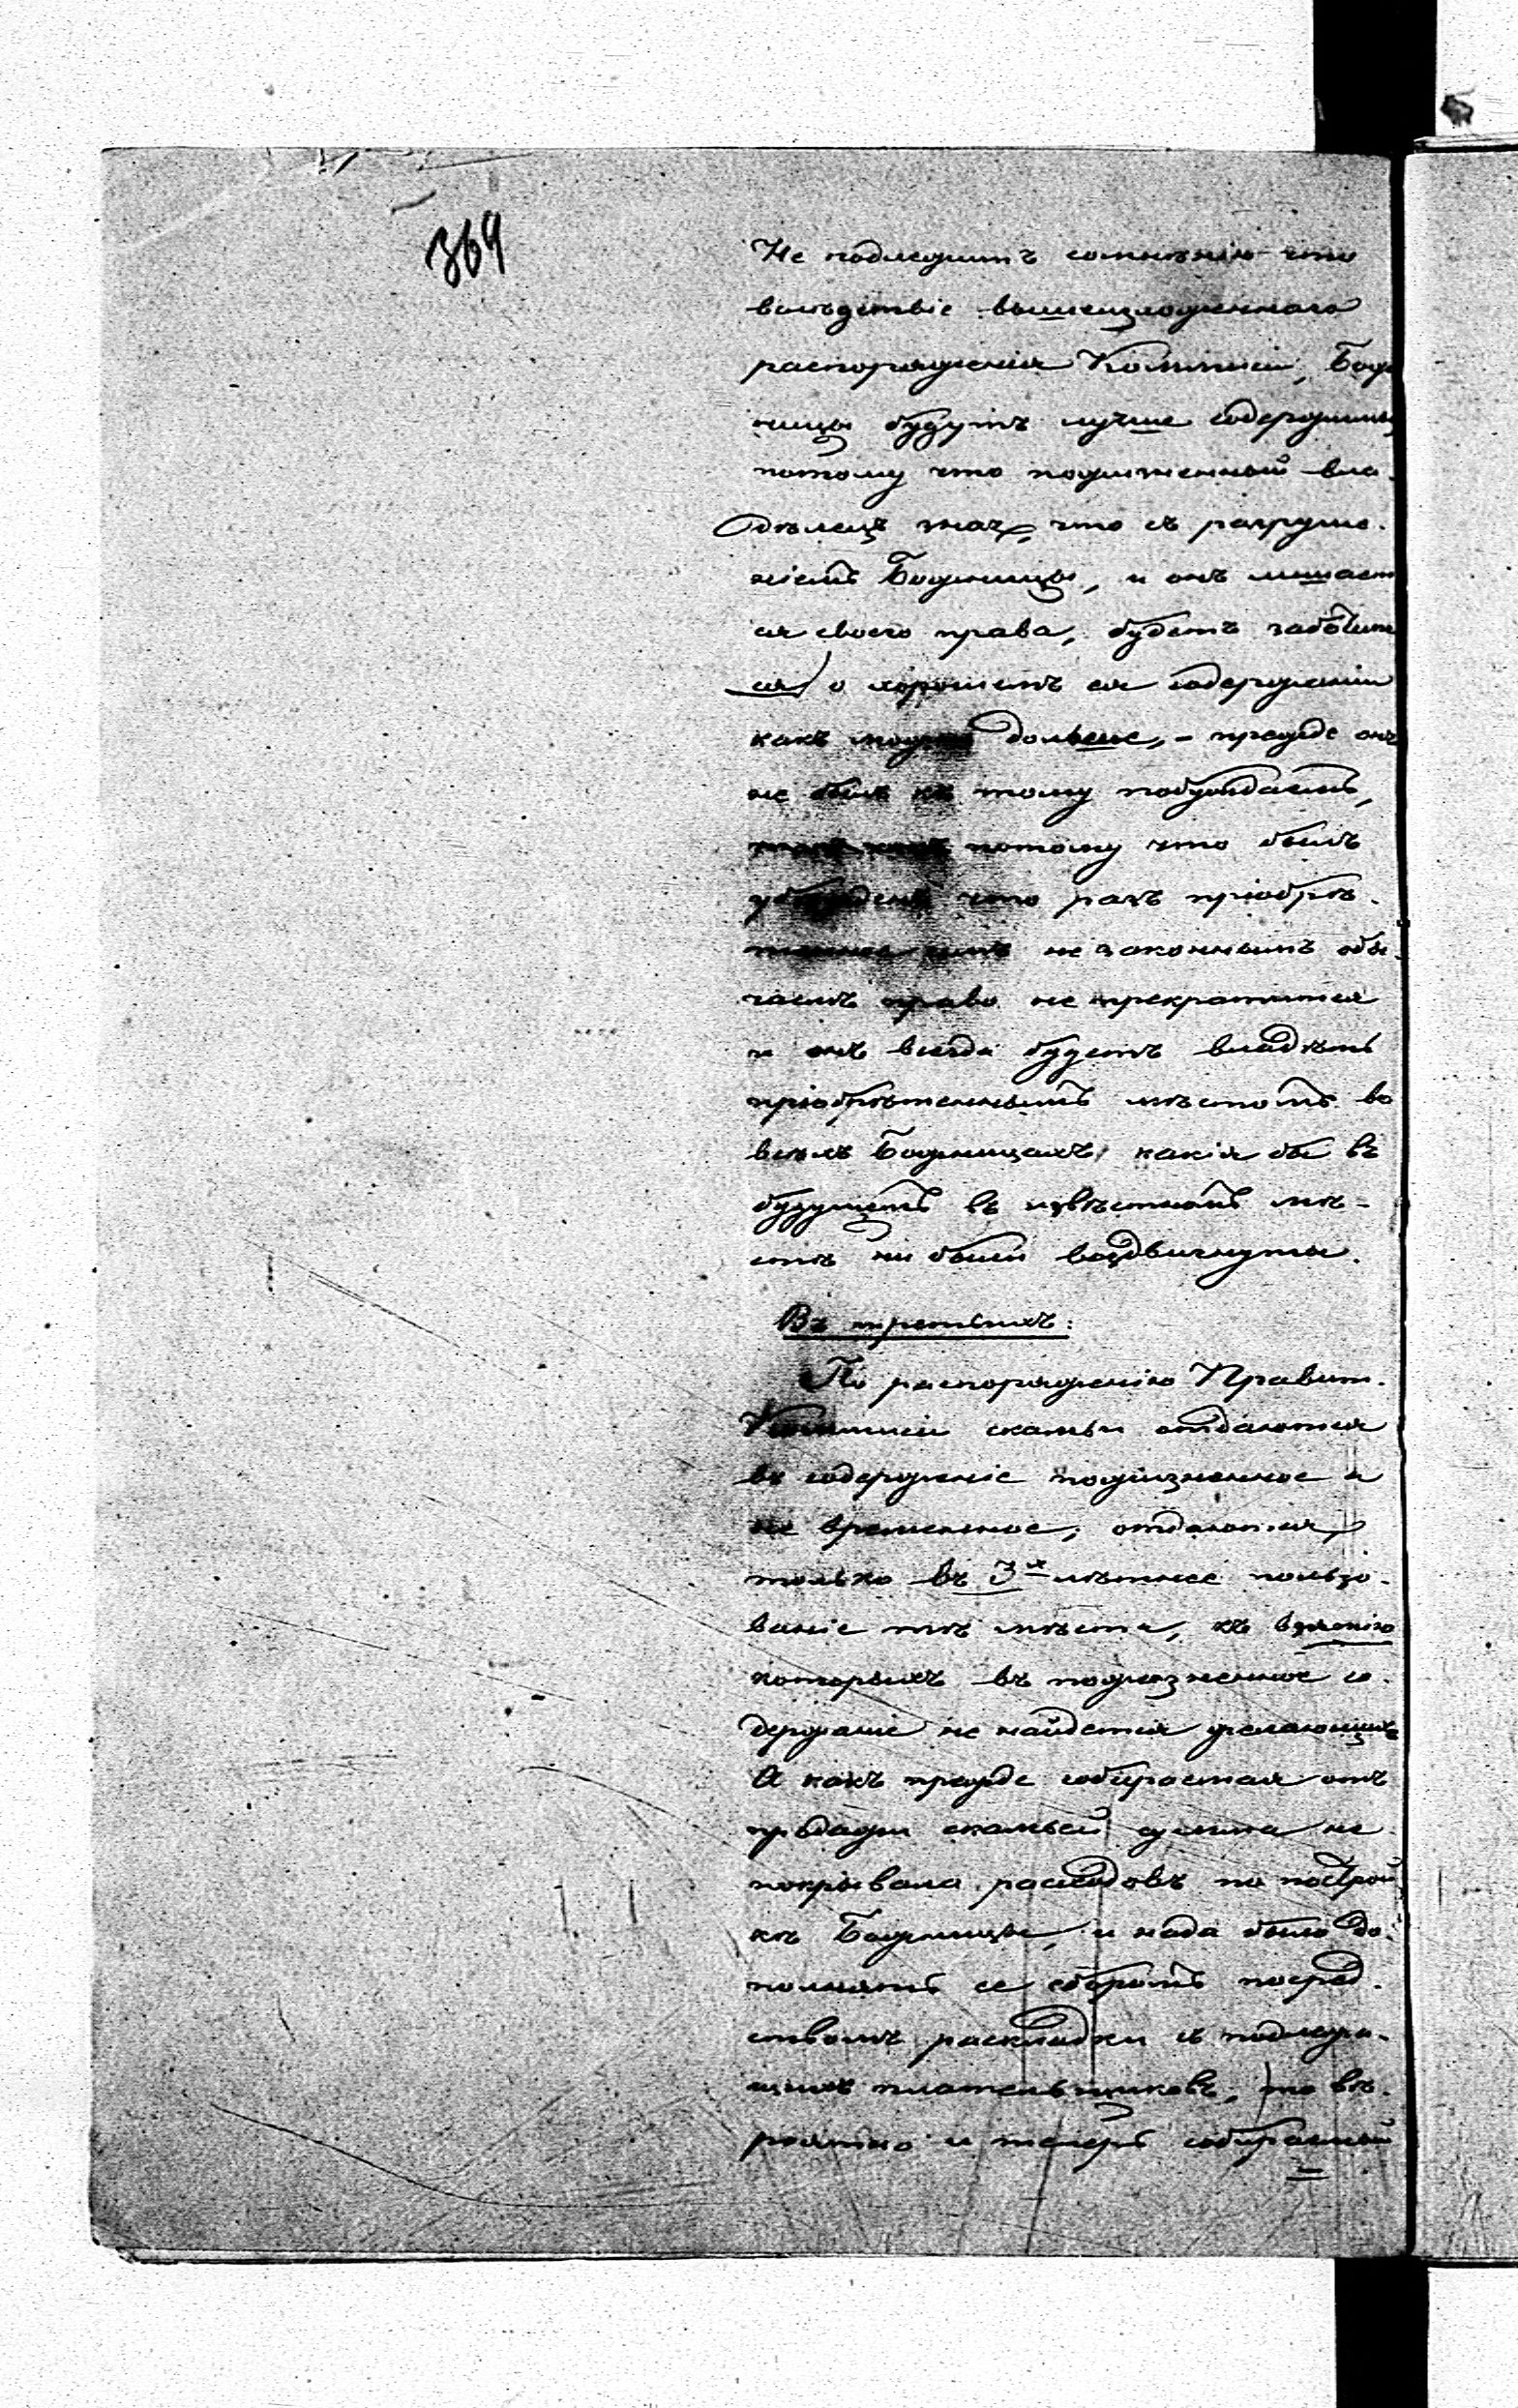 369
Не подлежитъ сомнѣнію что
вслѣдствіе вышеизложеннаго
распоряженія Коммисіи, Бож
ницы будутъ лучше содержимы
потому что пожизненный вла-
дѣлецъ зная, что съ разруше-
ніемъ Божницы, и онъ лишает
ся своего права, будетъ заботить
ся о хорошемъ ея содержаніи
какъ можно дольше, - прежде онъ
не былъ къ тому побуждаемъ,
потому что былъ
убѣжденъ что разъ пріобрѣ-
тенное имъ не законнымъ обы-
чаемъ право не прекратится
и онъ всегда будетъ владѣть
пріобрѣтеннымъ мѣстомъ во
всѣхъ Божницахъ какія бы въ
будущемъ въ извѣстномъ мѣ-
стѣ ни были воздвигнуты.
Въ третьихъ:
По распоряженію Правит.
Коммисіи скамьи отдаются
въ содержаніе пожизненное и
не временное, отдаются
только въ 3х лѣтнее пользо-
ваніе тѣ мѣста, къ взятію
которыхъ въ пожизненное со-
держаніе не найдется желающихъ
А какъ прежде собираемая отъ
продажи скамьей сумма не
покрывала расходовъ по построй
кѣ Божницы, и надо было до-
полнять ее сборомъ посред-
ствомъ раскладки съ подлежа-
щихъ плательщиковъ, то вѣ-
роятно и теперь собираемый